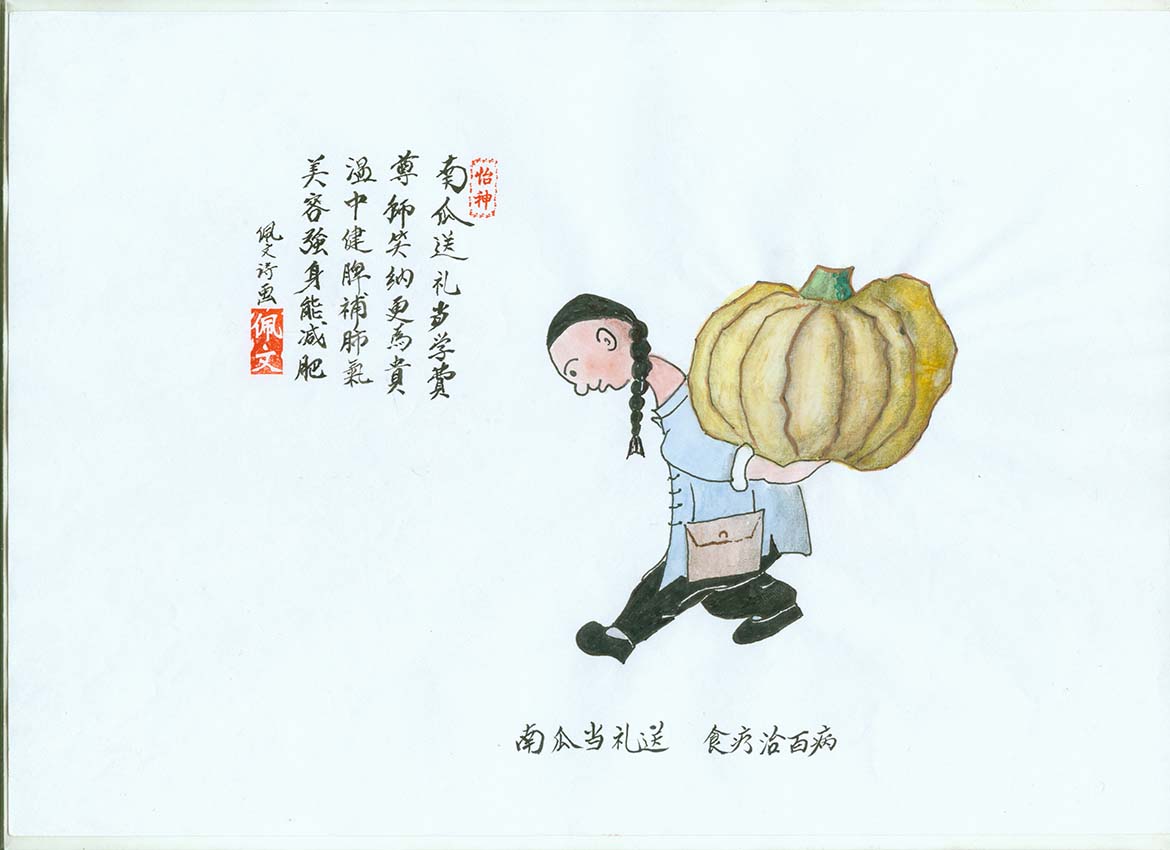 怡神
南瓜送礼当学费
尊師笑纳更為貴
温中健脾補肺氣
美容強身能减肥
佩文诗画
佩文
南瓜当礼送 食疗治百病